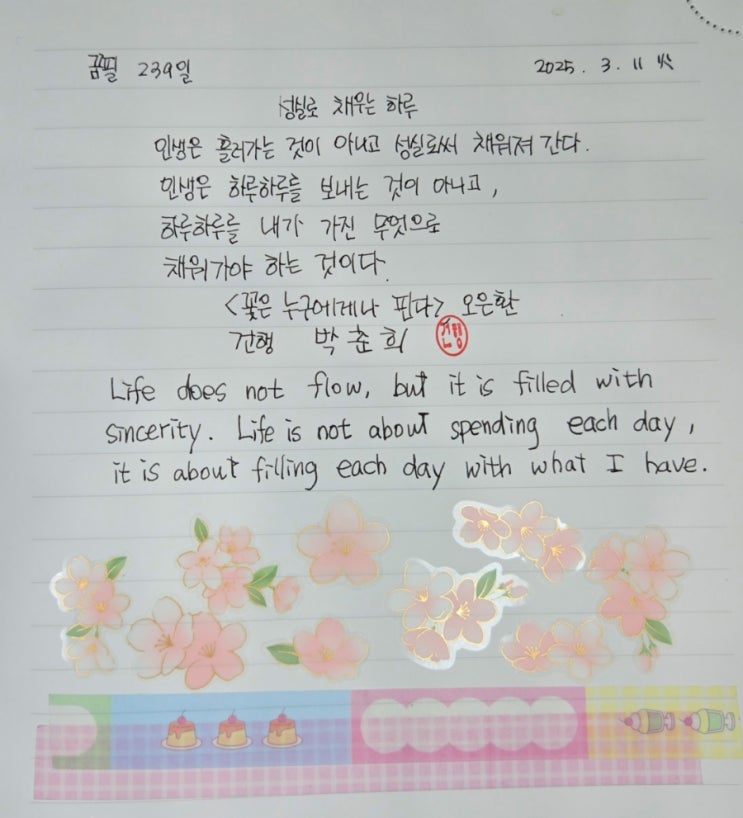 꿈필 239일
2025. 3. 11 火
성실로 채우는 하루
인생은 흘러가는 것이 아니고 성실로써 채워져 간다.
인생은 하루하루를 보내는 것이 아니고,
하루하루를 내가 가진 무엇으로
채워가야 하는 것이다.
<꽃은 누구에게나 핀다> 오은환
건행 박춘희 건행
Life does not flow, but it is filled with
sincerity. Life is not about spending each day,
it is about filling each day with what I have.